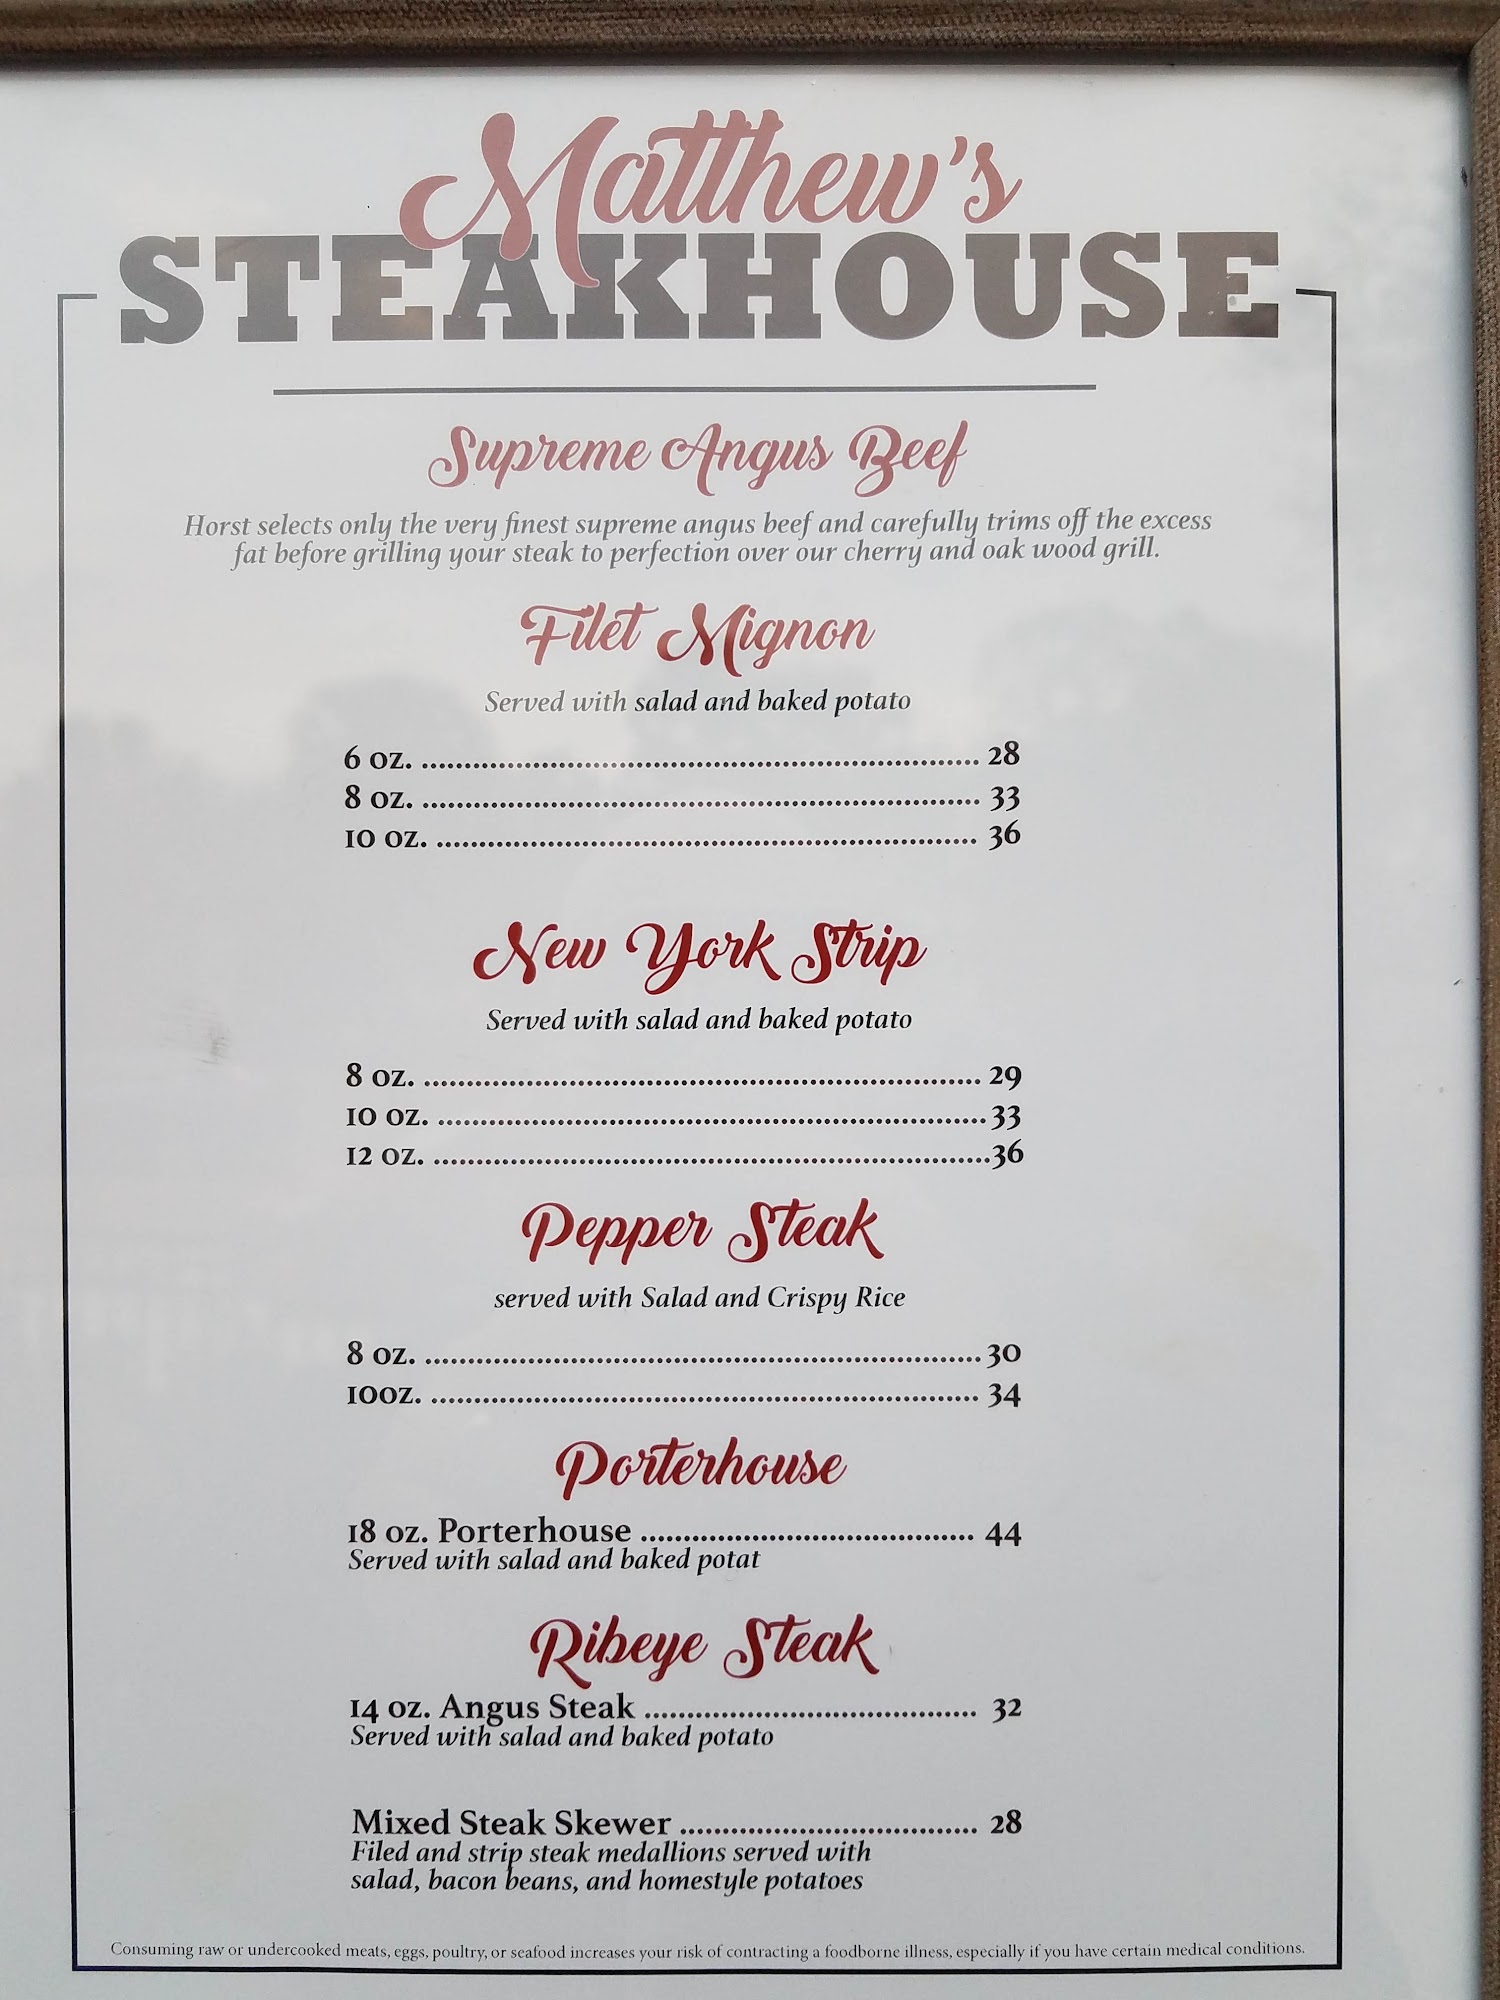 Matthew's
STEAKHOUSE
Supreme Angus Beef
Horst selects only the very finest supreme angus beef and carefully trims off the excess
fat before grilling your steak to perfection over our cherry and oak wood grill.
Filet Mignon
Served with salad and baked potato
6 oz. .................................................................. 28
8 oz. .................................................................. 33
10 oz. ................................................................ 36
New York Strip
Served with salad and baked potato
8 oz. .................................................................. 29
10 oz. .................................................................33
12 oz. ..................................................................36
Pepper Steak
served with Salad and Crispy Rice
8 oz. .................................................................. 30
10oz. ................................................................. 34
Porterhouse
18 oz. Porterhouse ........................................ 44
Served with salad and baked potat
Ribeye Steak
14 oz. Angus Steak ........................................ 32
Served with salad and baked potato
Mixed Steak Skewer .................................... 28
Filed and strip steak medallions served with
salad, bacon beans, and homestyle potatoes
Consuming raw or undercooked meats, eggs, poultry, or seafood increases your risk of contracting a foodborne illness, especially if you have certain medical conditions.